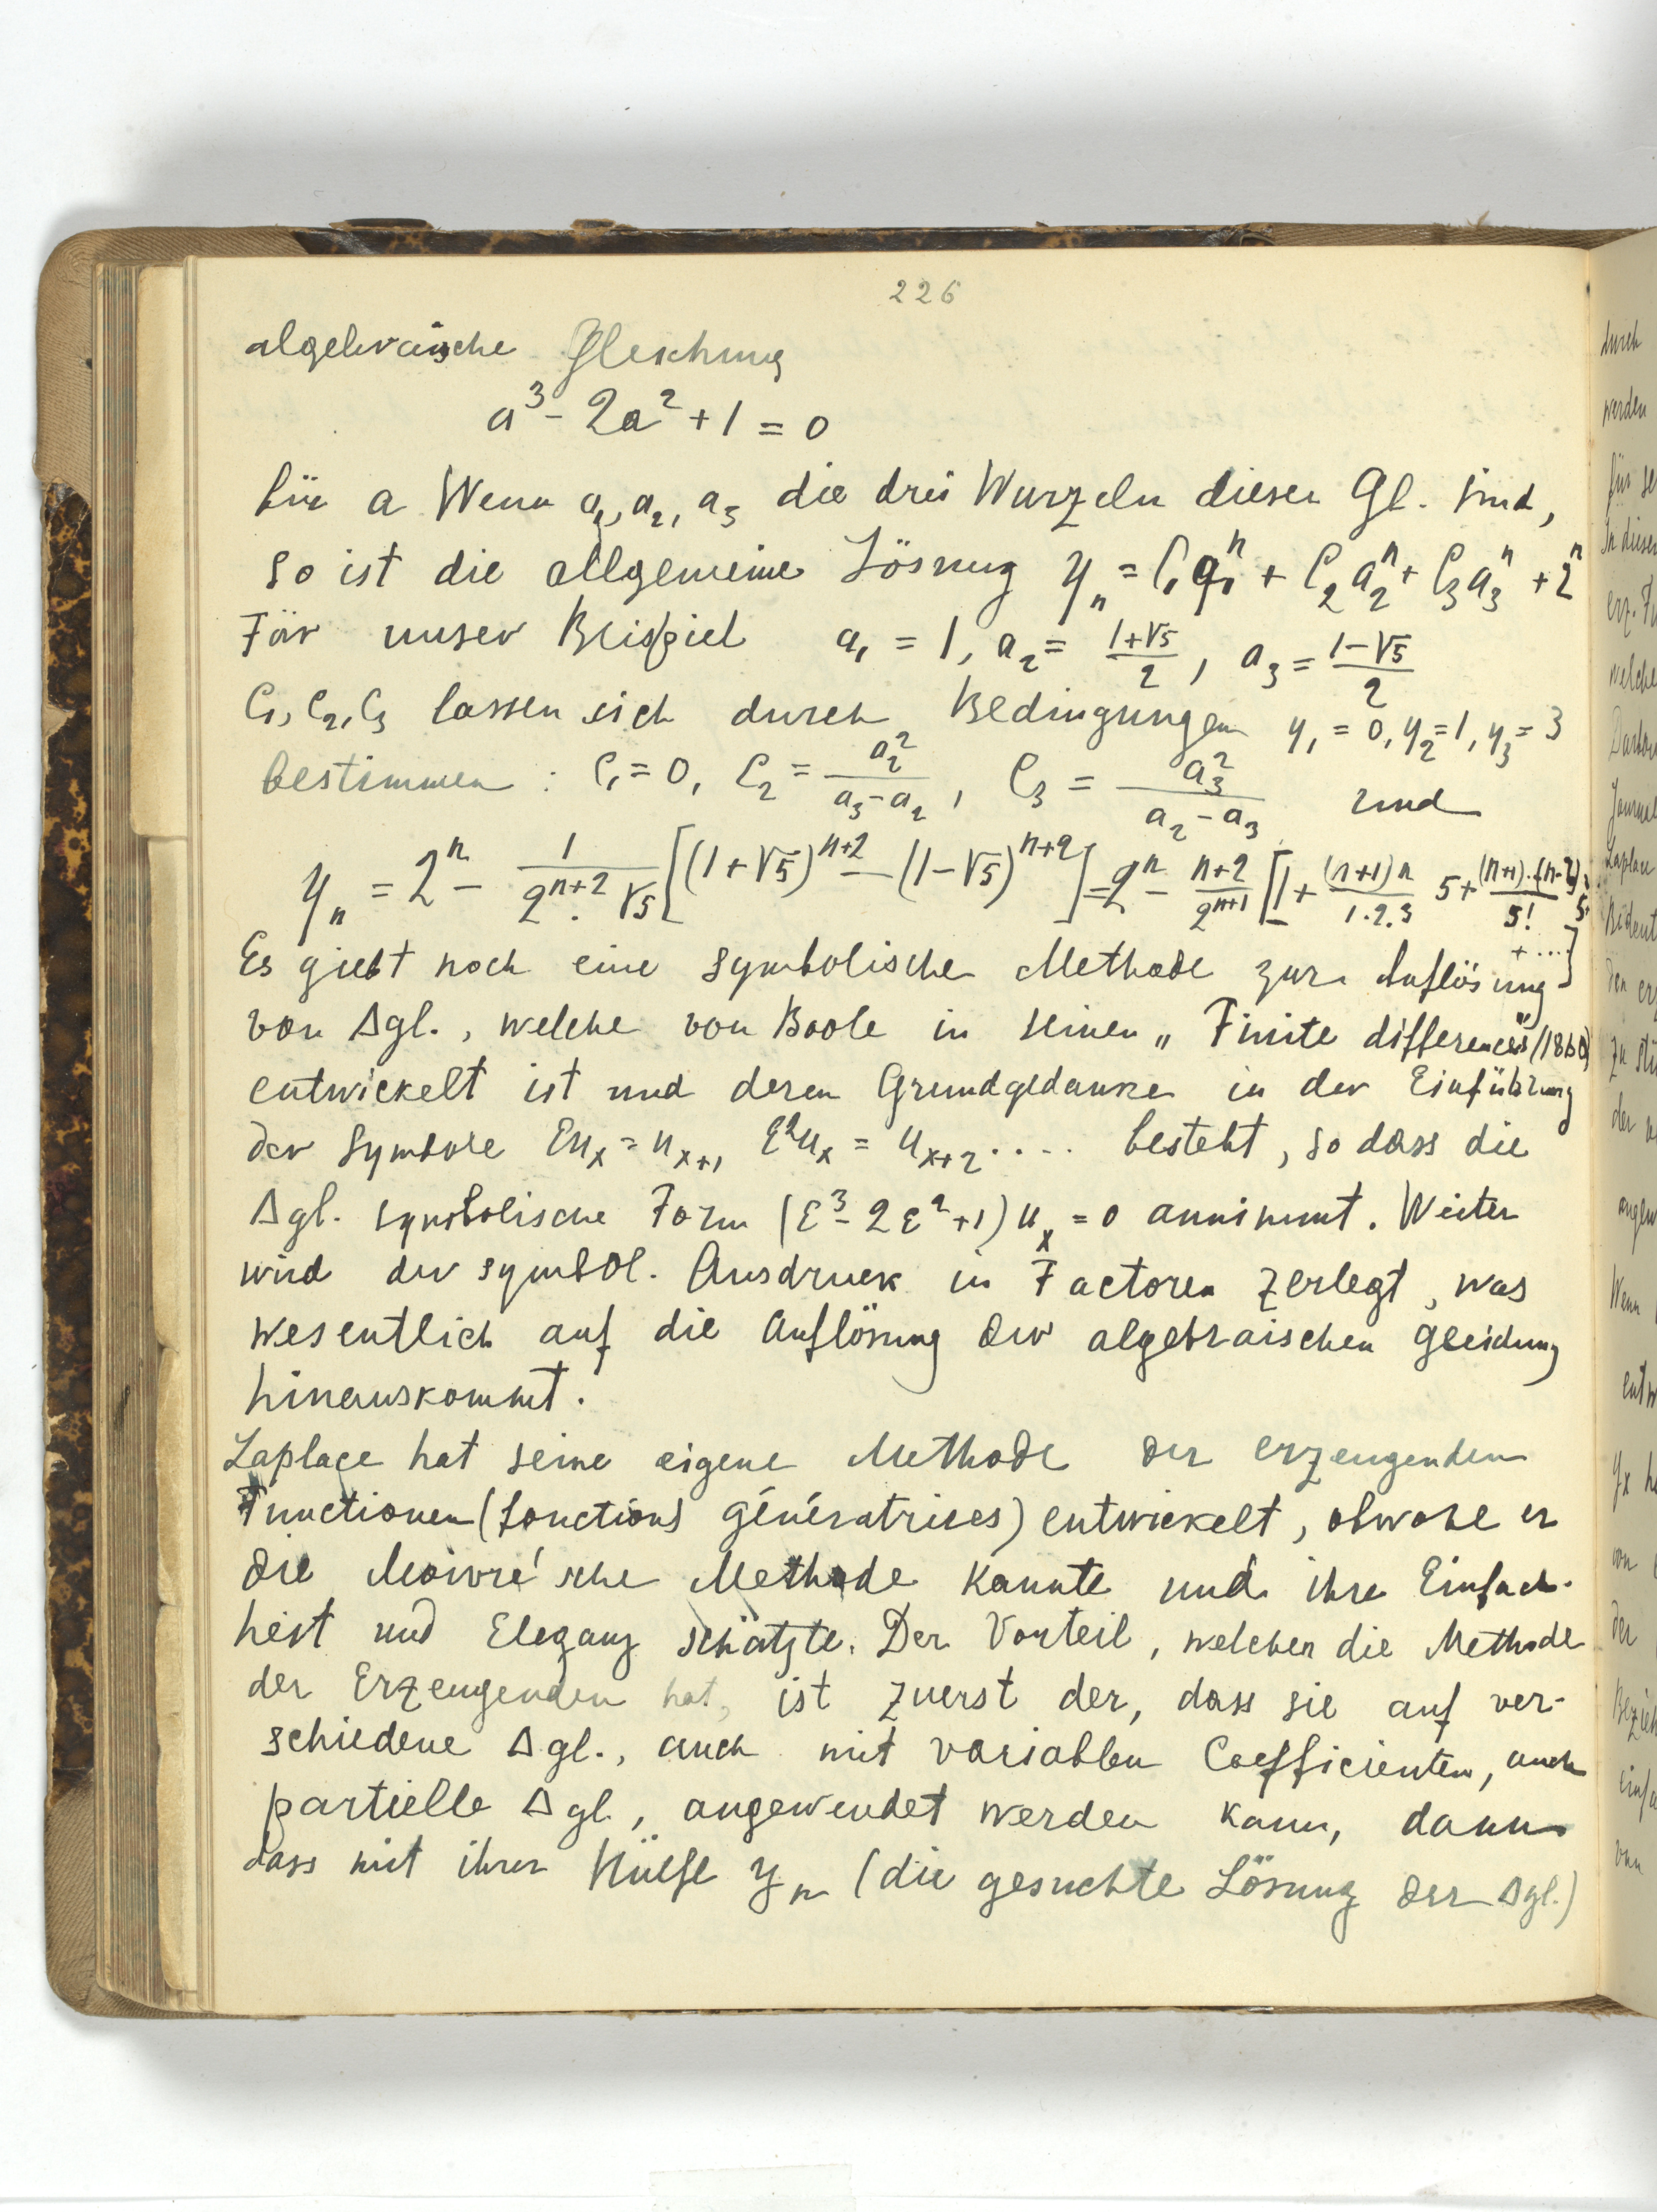 226
algebraische Gleichung
a³ - 2a² + 1 = 0
für a Wenn a₁, a₂, a₃ die drei Wurzeln dieser Gl. sind,
so ist die allgemeine Lösung yₙ = C₁a₁ⁿ + C₂a₂ⁿ + C₃a₃ⁿ + 2ⁿ
Für unser Beispiel a₁ = 1, a₂ = (1+√5)/2, a₃ = (1-√5)/2
C₁, C₂, C₃ lassen sich durch Bedingungen y₁ = 0, y₂ = 1, y₃ = 3
bestimmen : C₁ = 0, C₂ = a₂²/(a₃-a₂), C₃ = a₃²/(a₂-a₃) und
yₙ = 2ⁿ - 1/(2ⁿ⁺².√5) [(1+√5)ⁿ⁺² - (1-√5)ⁿ⁺²] = 2ⁿ - (n+2)/2ⁿ⁺¹ [1 + (n+1)n/(1.2.3) 5 + (n+1)..(n-2)/5! 5²
+ ...]
Es giebt noch eine symbolische Methode zur Auflösung
von Δgl., welche von Boole in seinen „Finite differences" (1860)
entwickelt ist und deren Grundgedanke in der Einführung
der Symbole Euₓ = uₓ₊₁ E²uₓ = uₓ₊₂ .... besteht, so dass die
Δgl. symbolische Form (E³ - 2E² + 1) uₓ = 0 annimmt. Weiter
wird der symbol. Ausdruck in Factoren zerlegt, was
wesentlich auf die Auflösung der algebraischen Gleichung
hinauskommt.
Laplace hat seine eigene Methode der erzeugenden
Functionen (fonctions génératrices) entwickelt, obwohl er
die Moivre'sche Methode kannte und ihre Einfach-
heit und Eleganz schätzte. Der Vorteil, welchen die Methode
der Erzeugenden hat, ist zuerst der, dass sie auf ver-
schiedene Δgl., auch mit variablen Coefficienten, auch
partielle Δgl., angewendet werden kann, dann
dass mit ihrer Hülfe yₙ (die gesuchte Lösung der Δgl.)